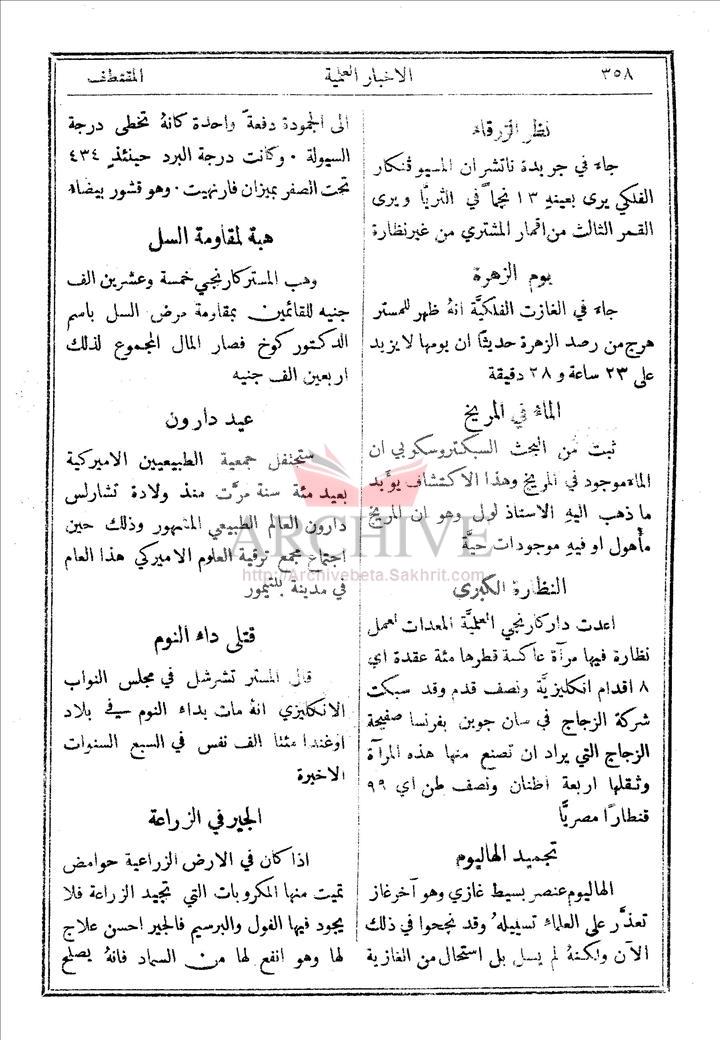 ٣٥٨
الاخبار العلمية
المقتطف
نظر الزرقاء
جاء في جريدة ناتشر ان المسيو فنكار
الفلكي يرى بعينهِ ١٣ نجماً في الثريَّا ويرى
القمر الثالث من اقمار المشتري من غير نظارة
يوم الزهرة
جاء في الغازت الفلكيَّة انهُ ظهر للمستر
هرج من رصد الزهرة حديثًا ان يومها لا يزيد
على ٢٣ ساعة و ٢٨ دقيقة
الماء في المريخ
ثبت من البحث السبكتروسكوبي ان
الماء موجود في المريخ وهذا الاكتشاف يؤيد
ما ذهب اليهِ الاستاذ لول وهو ان المريخ
مأهول او فيهِ موجودات حيَّة
النظارة الكبرى
اعدت دار كارنجي العلميَّة المعدات لعمل
نظارة فيها مرآة عاكسة قطرها مئة عقدة اي
٨ اقدام انكليزيَّة ونصف قدم وقد سبكت
شركة الزجاج في سان جوبن بفرنسا صفيحة
الزجاج التي يراد ان تصنع منها هذه المرآة
وثقلها اربعة اطنان ونصف طن اي ٩٩
قنطارًا مصريًّا
تجميد الهاليوم
الهاليوم عنصر بسيط غازي وهو آخر غاز
تعذَّر على العلماء تسييلهُ وقد نجحوا في ذلك
الآن ولكنهُ لم يسل بل استحال من الغازية
الى الجمودة دفعةً واحدة كانهُ تخطى درجة
السيولة . وكانت درجة البرد حينئذٍ ٤٣٤
تحت الصفر بميزان فارنهيت . وهو قشور بيضاء
هبة لمقاومة السل
وهب المستر كارنجي خمسة وعشرين الف
جنيه للقائمين بمقاومة مرض السل باسم
الدكتور كوخ فصار المال المجموع لذلك
اربعين الف جنيه
عيد دارون
ستحتفل جمعية الطبيعيين الاميركية
بعيد مئة سنة مرَّت منذ ولادة تشارلس
دارون العالم الطبيعي المشهور وذلك حين
اجتماع مجمع ترقية العلوم الاميركي هذا العام
في مدينة بلتيمور
قتلى داء النوم
قال المستر تشرشل في مجلس النواب
الانكليزي انهُ مات بداء النوم في بلاد
اوغندا مئتا الف نفس في السبع السنوات
الاخيرة
الجير في الزراعة
اذا كان في الارض الزراعية حوامض
تميت منها المكروبات التي تجيد الزراعة فلا
يجود فيها الفول والبرسيم فالجير احسن علاج
لها وهو انفع لها من السماد فانهُ يصلح
ARCHIVE
http://Archivebeta.Sakhrit.com